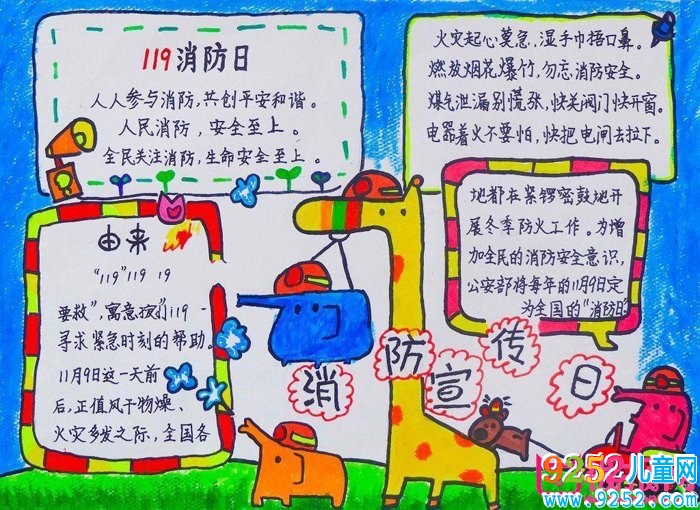 119消防日
人人参与消防,共创平安和谐。
人民消防,安全至上。
全民关注消防,生命安全至上。
火灾起心莫急,湿手巾捂口鼻。
燃放烟花爆竹,勿忘消防安全。
煤气泄漏别慌张,快关阀门快开窗。
电器着火不要怕,快把电闸去拉下。
由来
“119”119 19
救”,寓意 119 -
寻求紧急时刻的帮助。
11月9日这一天前
后,正值风干物燥、
火灾多发之际,全国各
地都在紧锣密鼓地开
展冬季防火工作。为增
加全民的消防安全意识,
公安部将每年的11月9日定
为全国的“消防日”
消防宣传日
9252儿童网
www.9252.com